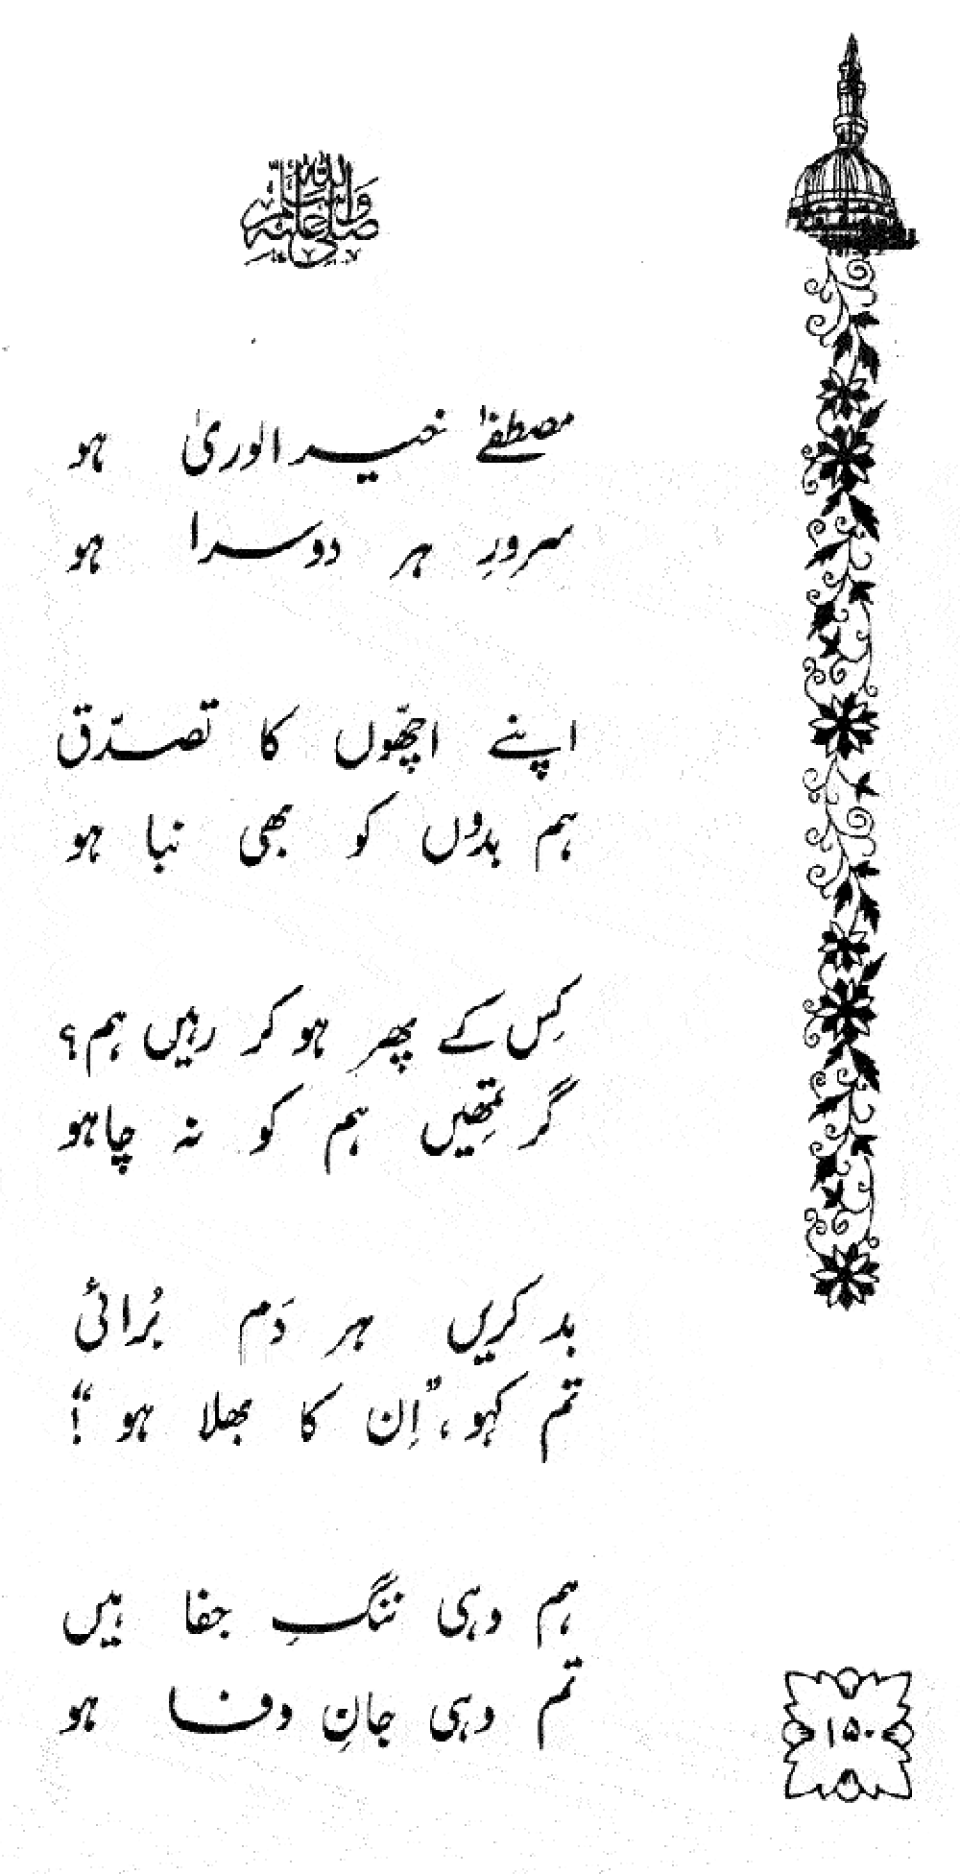 صلی اللہ علیہ وسلم
مصطفےٰ خیر الوریٰ ہو
سرورِ ہر دوسرا ہو
اپنے اچھّوں کا تصدّق
ہم بدوں کو بھی نبا ہو
کِس کے پھر ہو کر رہیں ہم؟
گر تمھِیں ہم کو نہ چاہو
بد کریں ہر دَم بُرائی
تم کہو، ”اِن کا بھلا ہو“!
ہم وہی ننگِ جفا ہیں
تم وہی جانِ وفا ہو
۱۵۰